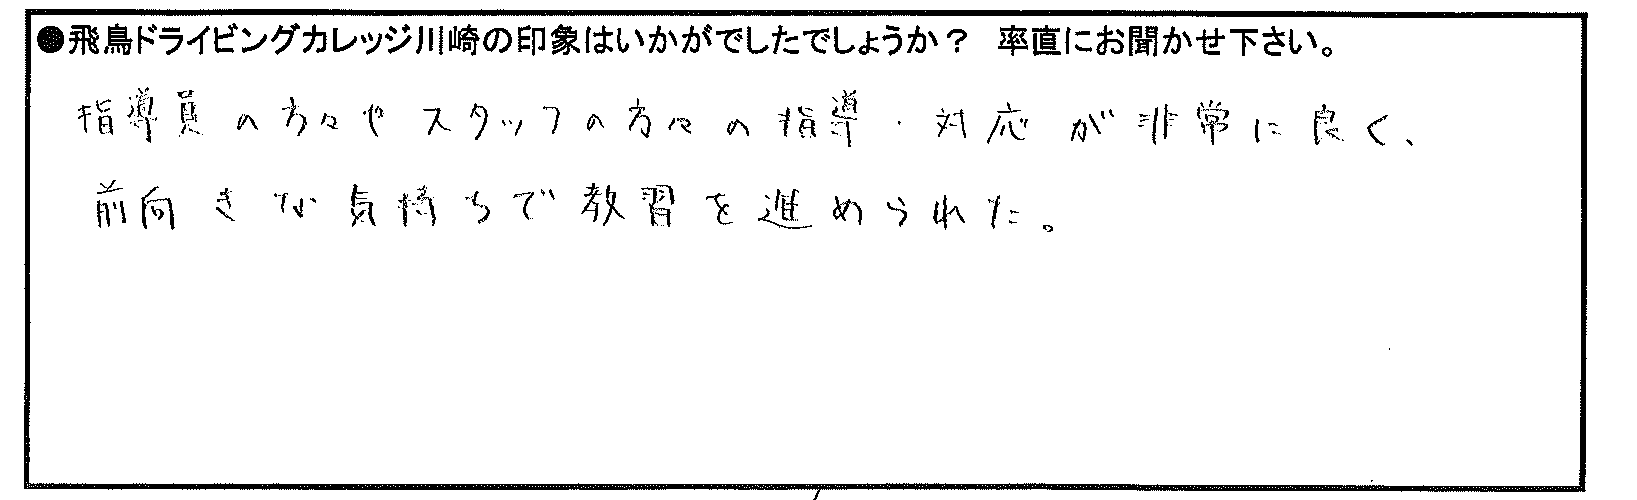 ●飛鳥ドライビングカレッジ川崎の印象はいかがでしたでしょうか？　率直にお聞かせ下さい。
指導員の方々やスタッフの方々の指導・対応が非常に良く、
前向きな気持ちで教習を進められた。